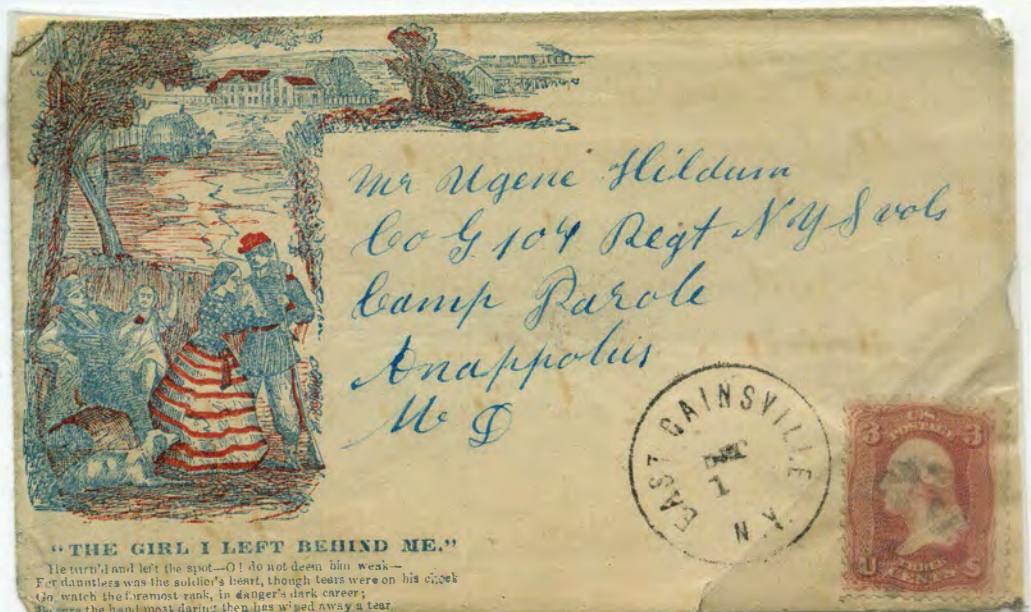 Mr Ugene Hildum
Co G 104 Regt N Y S vols
Camp Parole
Anappolus
M D
EAST GAINSVILLE
N.Y.
DEC
1
U.S.
POSTAGE
3 3
U S
THREE
CENTS
"THE GIRL I LEFT BEHIND ME."
He turn'd and left the spot—O! do not deem him weak—
For dauntless was the soldier's heart, though tears were on his cheek
Go, watch the foremost rank, in danger's dark career;
Be sure the hand most daring then has wiped away a tear